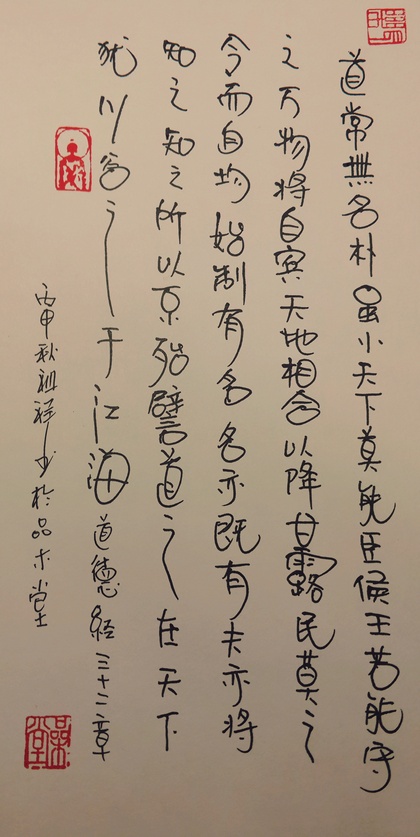 道常無名朴虽小天下莫能臣侯王若能守
之万物将自宾天地相合以降甘露民莫之
令而自均始制有名名亦既有夫亦将
知之知之所以不殆譬道之在天下
犹川谷之于江海道德经三十二章
丙申秋祖祥书於品木堂